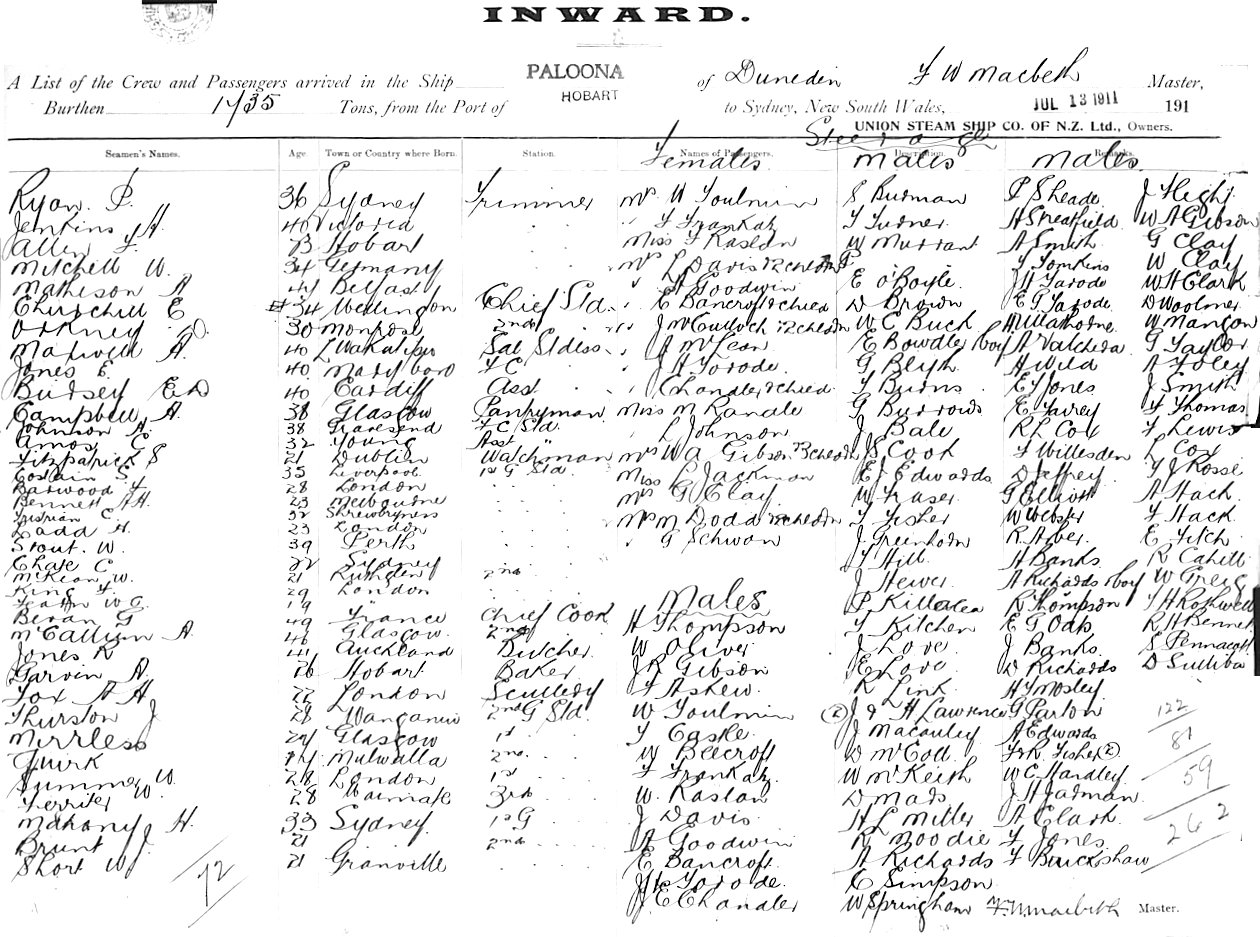 INWARD.
A List of the Crew and Passengers arrived in the Ship PALOONA of Dunedin F W Macbeth Master,
HOBART
Burthen 1735 Tons, from the Port of to Sydney, New South Wales, JUL 13 1911 191
UNION STEAM SHIP CO. OF N.Z. Ltd., Owners.
Steerage
Seamen's Names. Age. Town or Country where Born. Station. Names of Passengers. Description. Remarks.
Females Males Males
Ryan P. 36 Sydney Trimmer Mrs W Toulmin S Budman P Sheade J Hight
Jenkins H. 40 Victoria F Frankaz T Turner H Sheatfield W A Gibson
Allen F. 23 Hobart Miss F Raslan W Murrant A Smith G Clay
Mitchell W. 34 Germany Mrs L Davis & 2 chldn Y Tomkins W Clay
Mathison A 44 Belfast A Goodwin E O'Boyle J H Yarode W H Clark
Churchill E 34 Wellington Chief Std. E Bancroft & child D Brown E G Yarode D Woolmer
Orkney 30 Monrose 2nd J McCulloch & chldn W E Buck W Mangon
Maxwell A. 40 L Wakatipu Sal Stdess A McLean E Bowdler boy A Valcheda G Taylor
Jones E. 40 Mary boro F C J H Yorode G Blyth A Wild A Foley
Budsey E D 40 Cardiff Asst Chandler & child T Burns E Y Jones J Smith
Campbell A. 38 Glasgow Pantryman Miss M Randle G Burrows E Favey F Thomas
Johnson A. 38 Gravesend F C Std. L Johnson J Bale R L Cox F Lewis
Amos C 32 Young Asst " Mrs W A Gibson 3 chldn S Cook F Willesden L Cox
Fitzpatrick S 21 Dublin Watchman Miss L Jackman E J Edwards D Jeffrey Y J Rosse
Costain S. 35 Liverpool 1st G Std. Mrs G Clay W Fraser G Elliott A Hack
Barwood F 28 London Mrs M Dodd & chldn T Fisher W Webster F Hack
Bennett A H. 23 Melbourne G Schwan J Greenhorn R Aber E Fitch
C. 32 Shrewsbury T Hill A Banks R Cahill
Ladd H. 23 London J Hewer A Richards boy W Greig
Stout. W. 39 Perth
Chase C 22 Sydney Males
McKean W. 21 Rushden 2nd H Thompson P Killalea R Thompson F H Rothwell
King F. 29 London W Oliver T Kitchen E G Oats R H Bennet
Featon W G. 19 " J R Gibson J Love J Banks S Pennacott
Bevan G 49 France Chief Cook F Askew. E Love W Richards D Sulliva
McCallum A. 40 Glasgow 2nd W Toulmin R Link H Mosley
Jones R 44 Auckland Butcher T Caske (2) J & H Lawrence G Parton
Garvin A 26 Hobart Baker W Beecroft J Macauley A Edwards
Fox A H 22 London Scullery F Frankaz W McColl F & R Fisher (2)
Thurston J 28 Wanganui 2nd G Std. W. Raslan W McKeith W C Hardley
Mirrless 24 Glasgow 1st J Davis. D Mads J H Jadman
Quirk 24 Mulwalla 2nd A Goodwin H L Miller A Clark
Summer W. 28 London 1st E Bancroft R Moodie F Jones
Ferriter W. 28 3rd J H Yorode. A Richards F Buckshaw
Mahony H. 33 Sydney 1st G J E Chandler C Simpson
Brunt J. 21 2nd W Springham
Short W 21 Granville
72
122
81
59
262
F. W. Macbeth Master.